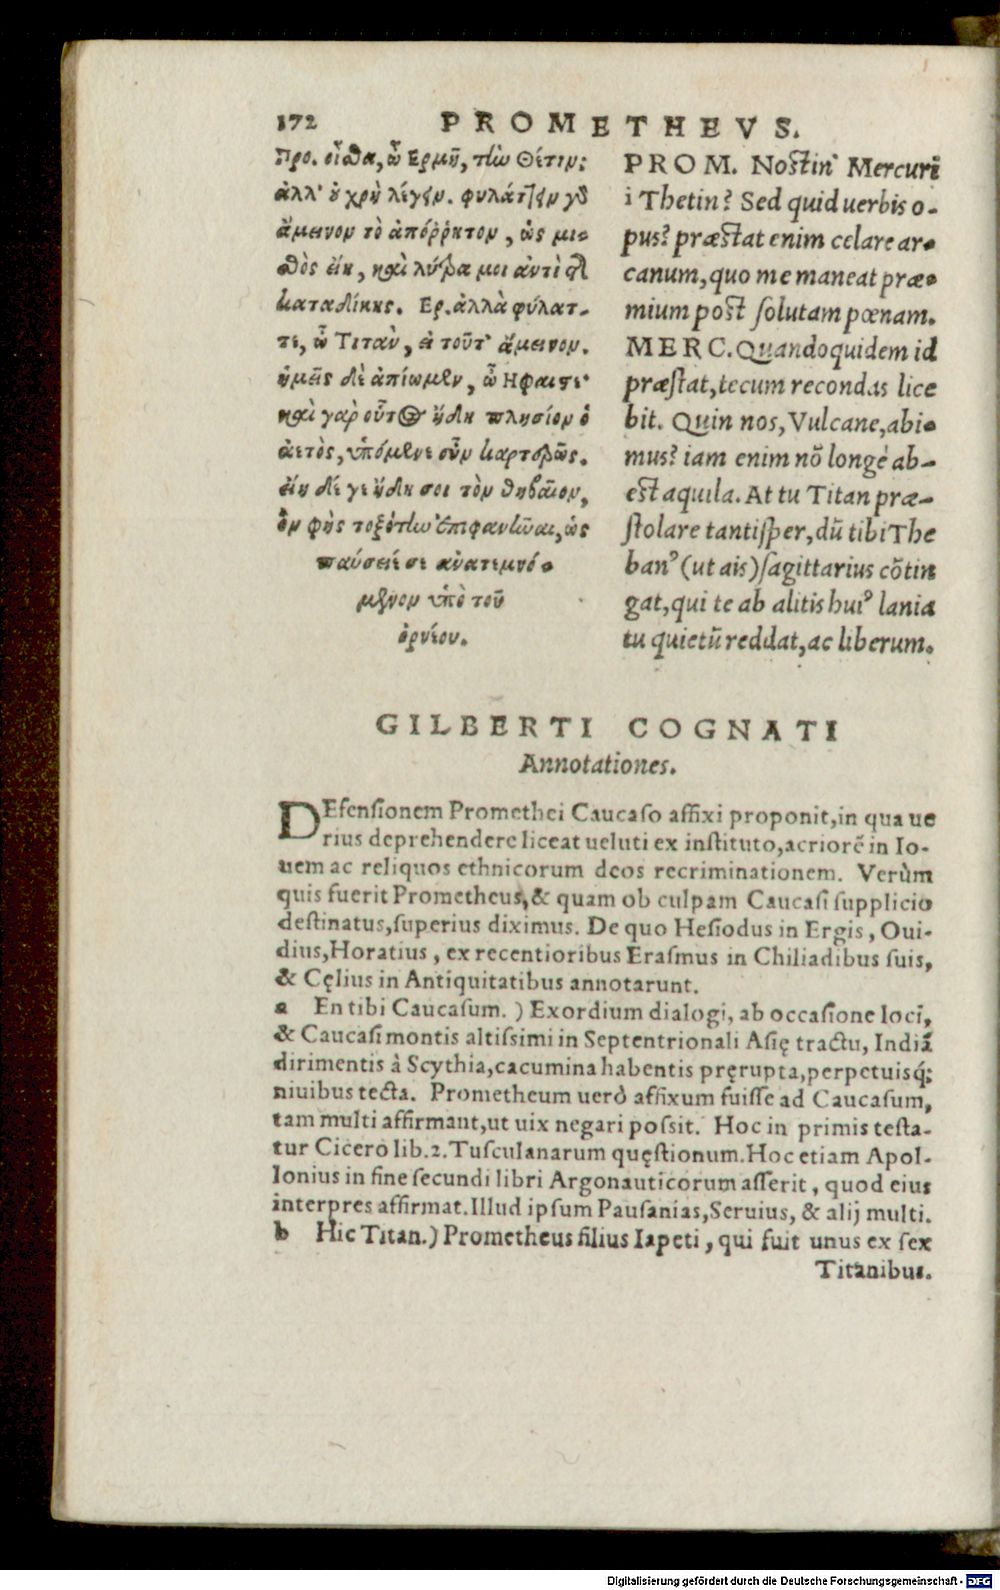 172 PROMETHEVS.
Προ. οἶσθα, ὦ Ερμῆ, τὴν Θέτιν;
ἀλλ' οὐ χρὴ λέγειν. φυλάττειν γὸ
ἄμεινον τὸ ἀπόῤῥητον, ὡς μι-
σθὸς εἴη, καὶ λύτρα μοι ἀντὶ τῆς
καταδίκης. Ερ. ἀλλὰ φύλατ-
τε, ὦ Τιτὰν, εἰ τοῦτ' ἄμεινον.
ἡμεῖς δὲ ἀπίωμεν, ὦ Ηφαιστε·
καὶ γαρ οὗτος ἤδη πλησίον ὁ
ἀετὸς, ὑπόμενε οὖν καρτερῶς.
εἴη δέ γε ἤδη σοι τὸν θηβαῖον,
ὃν φῂς τοξότην ἐπιφανῆναι, ὡς
παύσειέ σε ἀνατεμνό-
μενον ὑπὸ τοῦ
ὀρνέου.
PROM. Nostin' Mercuri
i Thetin? Sed quid uerbis o-
pus? præstat enim celare ar-
canum, quo me maneat præ-
mium post solutam pœnam.
MERC. Quandoquidem id
præstat, tecum recondas lice
bit. Quin nos, Vulcane, abi-
mus? iam enim nō longè ab-
est aquila. At tu Titan præ-
stolare tantisper, dū tibi The
banꝰ (ut ais) sagittarius cōtin
gat, qui te ab alitis huiꝰ lania
tu quietū reddat, ac liberum.
GILBERTI COGNATI
Annotationes.
DEfensionem Promethei Caucaso affixi proponit, in qua ue
rius deprehendere liceat ueluti ex instituto, acriorē in Io-
uem ac reliquos ethnicorum deos recriminationem. Verùm
quis fuerit Prometheus, & quam ob culpam Caucasi supplicio
destinatus, superius diximus. De quo Hesiodus in Ergis, Oui-
dius, Horatius, ex recentioribus Erasmus in Chiliadibus suis,
& Cęlius in Antiquitatibus annotarunt.
a En tibi Caucasum.) Exordium dialogi, ab occasione loci,
& Caucasi montis altissimi in Septentrionali Asię tractu, Indiā
dirimentis à Scythia, cacumina habentis pręrupta, perpetuisq́;
niuibus tecta. Prometheum uerò affixum fuisse ad Caucasum,
tam multi affirmant, ut uix negari possit. Hoc in primis testa-
tur Cicero lib. 2. Tusculanarum quęstionum. Hoc etiam Apol-
lonius in fine secundi libri Argonauticorum asserit, quod eius
interpres affirmat. Illud ipsum Pausanias, Seruius, & alij multi.
b Hic Titan.) Prometheus filius Iapeti, qui fuit unus ex sex
Titanibus.
Digitalisierung gefördert durch die Deutsche Forschungsgemeinschaft - DFG